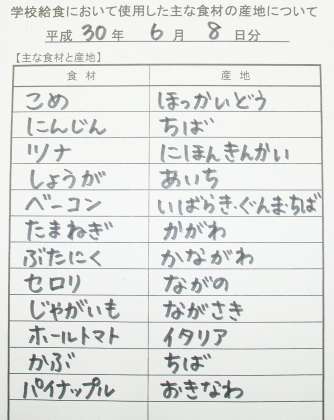 学校給食において使用した主な食材の産地について
平成 30 年 6 月 8 日分
【主な食材と産地】
食材 産地
こめ ほっかいどう
にんじん ちば
ツナ にほんきんかい
しょうが あいち
ベーコン いばらき・ぐんま・ちば
たまねぎ かがわ
ぶたにく かながわ
セロリ ながの
じゃがいも ながさき
ホールトマト イタリア
かぶ ちば
パイナップル おきなわ